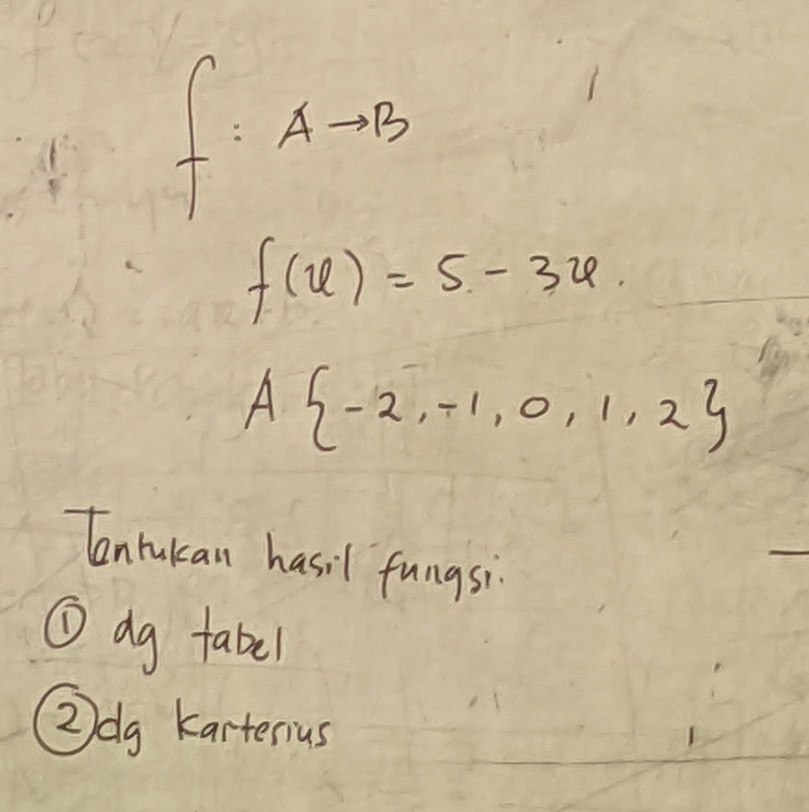 f : A → B
f(x) = 5 - 3x.
A {-2, -1, 0, 1, 2}
Tentukan hasil fungsi.
① dg tabel
② dg kartesius